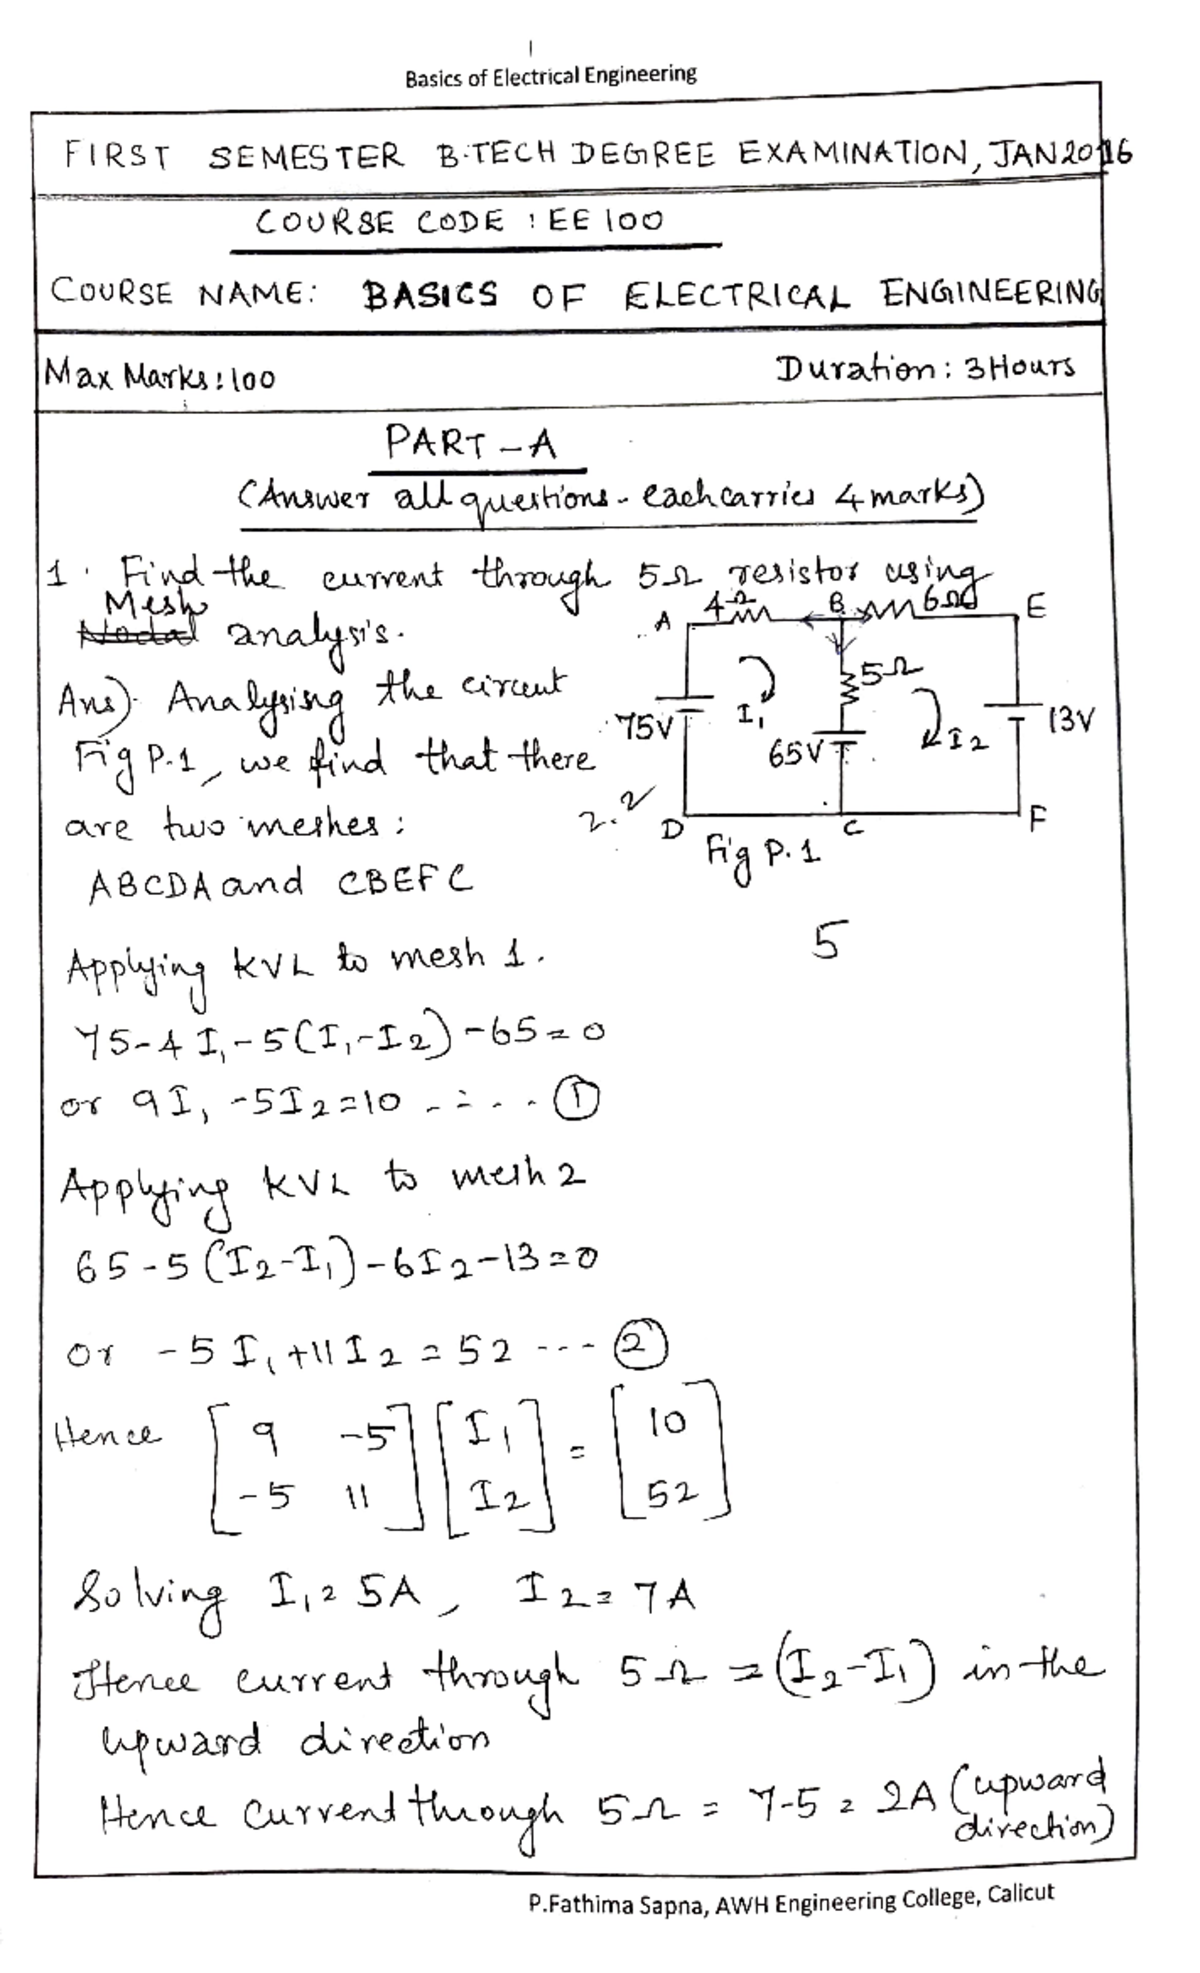 1
Basics of Electrical Engineering
FIRST SEMESTER B.TECH DEGREE EXAMINATION, JAN 2016
COURSE CODE : EE 100
COURSE NAME: BASICS OF ELECTRICAL ENGINEERING
Max Marks : 100 Duration : 3 Hours
PART - A
(Answer all questions - each carries 4 marks)
1. Find the current through 5Ω resistor using
Mesh
Nodal analysis.
A 4Ω B 6Ω E
Ans). Analysing the circuit
5Ω
I₁
75V
65V
I2
13V
Fig P.1, we find that there
are two meshes :
2.2
D
C
F
Fig P.1
ABCDA and CBEFC
5
Applying KVL to mesh 1.
75-4I₁-5(I₁-I2)-65=0
or 9I₁-5I2=10 ---- ①
Applying KVL to mesh 2
65-5(I2-I₁)-6I2-13=0
or -5I₁+11I2=52 --- ②
Hence [9 -5] [I₁] = [10]
[-5 11] [I2] [52]
Solving I₁=5A, I2=7A
Hence current through 5Ω = (I2-I₁) in the
upward direction
Hence current through 5Ω = 7-5 = 2A (upward
direction)
P.Fathima Sapna, AWH Engineering College, Calicut